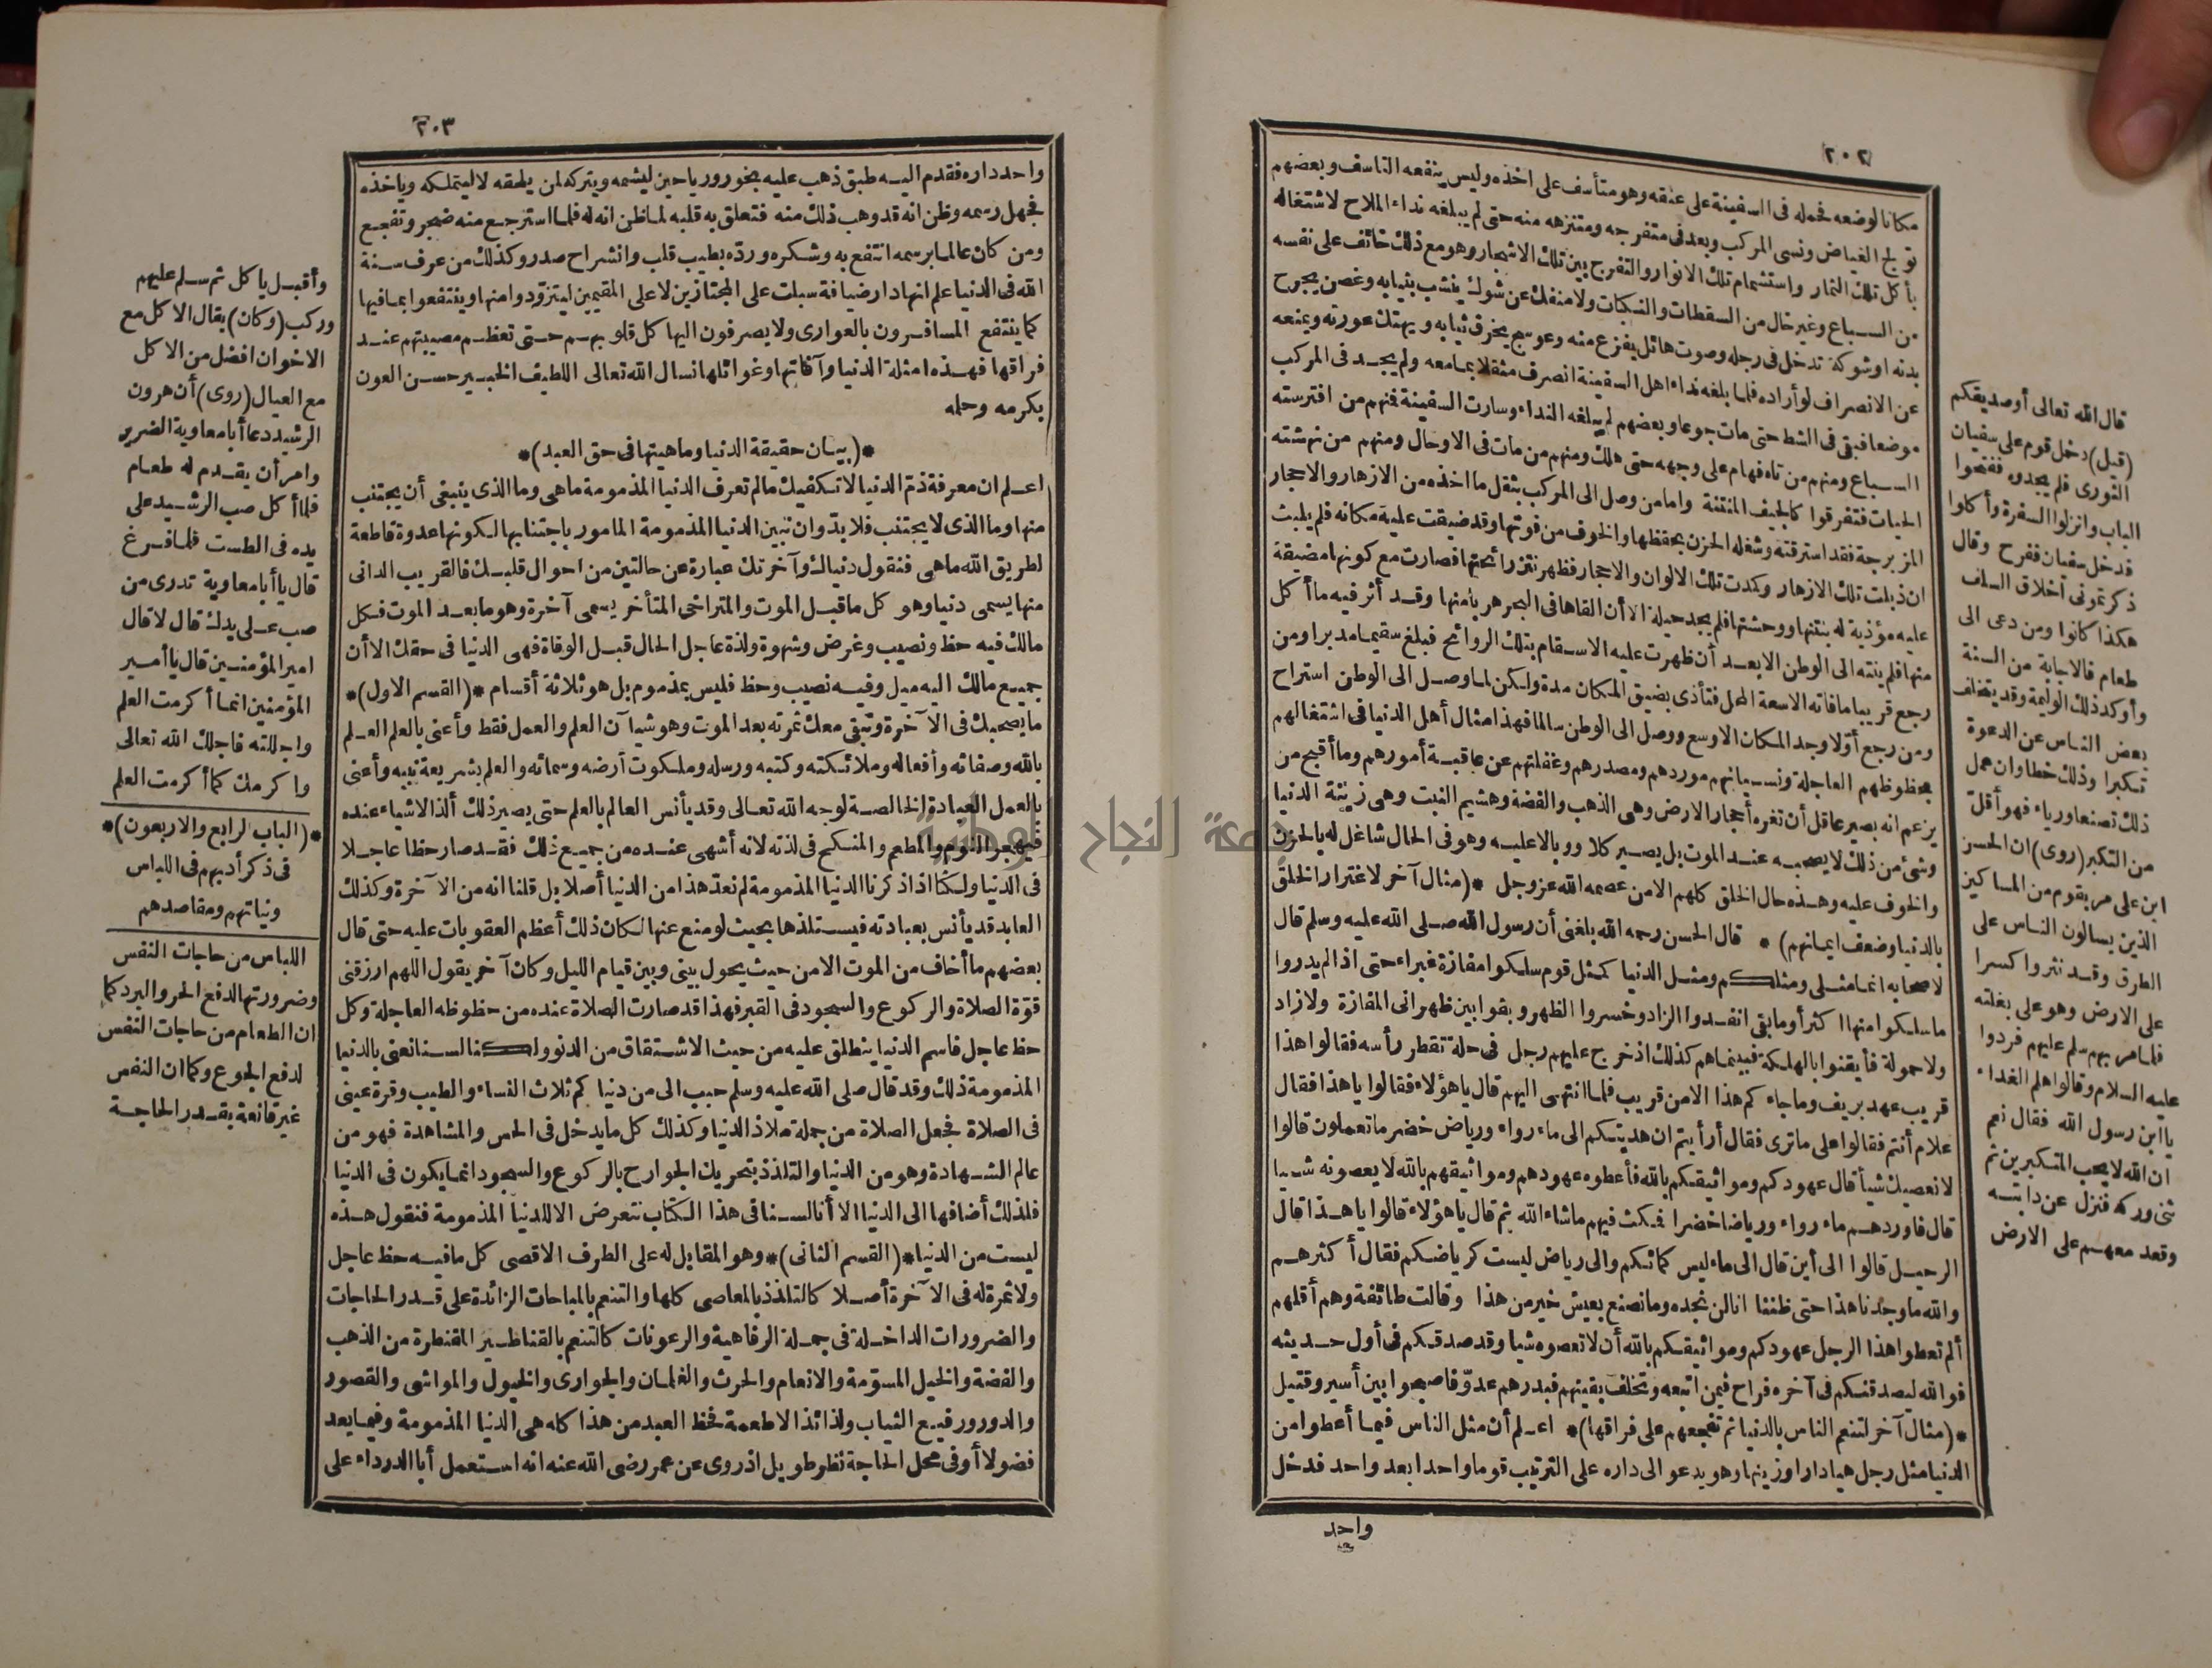 ٢٠٢
مكانا لوضعه فحمله فى السفينة على عنقه وهو متأسف على اخذه وليس ينفعه التاسف وبعضهم
تولج الغياض ونسى المركب وبعد فى متفرجه ومتنزهه منه حتى لم يبلغه نداء الملاح لاشتغاله
بأكل تلك الثمار واستشمام تلك الانوار والتفرج بين تلك الاشجار وهو مع ذلك خائف على نفسه
من السباع وغير خال من السقطات والنكبات ولا منفك عن شوك ينشب بثيابه وغصن يجرح
بدنه او شوكة تدخل فى رجله وصوت هائل يفزع منه وعوسج يخرق ثيابه ويهتك عورته ويمنعه
عن الانصراف لو أراده فلما بلغه نداء اهل السفينة انصرف مثقلا بما معه ولم يجد فى المركب
موضعا فبقى فى الشط حتى مات جوعا وبعضهم لم يبلغه النداء وسارت السفينة فمنهم من افترسته
السباع ومنهم من تاه فهام على وجهه حتى هلك ومنهم من مات فى الاوحال ومنهم من نهشته
الحيات فتفرقوا كالجيف المنتنة واما من وصل الى المركب بثقل ما اخذه من الازهار والاحجار
المزبرجة فقد استرقته وشغله الحزن بحفظها والخوف من فوتها وقد ضيقت عليه مكانه فلم يلبث
ان ذبلت تلك الازهار وكمدت تلك الالوان والاحجار فظهر نتن رائحتها فصارت مع كونها مضيقة
عليه مؤذية له بنتنها ووحشتها فلم يجد حيلة الا أن القاها فى البحر هربا منها وقد أثر فيه ما أكل
منها فلم ينته الى الوطن الا بعد أن ظهرت عليه الاسقام بتلك الروائح فبلغ سقيما مدبرا ومن
رجع قريبا ما فاته الا سعة المحل فتأذى بضيق المكان مدة ولكن لما وصل الى الوطن استراح
ومن رجع أوّلا وجد المكان الاوسع ووصل الى الوطن سالما فهذا مثال أهل الدنيا فى اشتغالهم
بحظوظهم العاجلة ونسيانهم موردهم ومصدرهم وغفلتهم عن عاقبة أمورهم وما أقبح من
يزعم انه بصير عاقل أن تغره أحجار الارض وهى الذهب والفضة وهشيم النبت وهى زينة الدنيا
وشئ من ذلك لا يصحبه عند الموت بل يصير كلا ووبالا عليه وهو فى الحال شاغل له بالحزن
والخوف عليه وهذه حال الخلق كلهم الا من عصمه الله عز وجل *(مثال آخر لاغترار الخلق
بالدنيا وضعف ايمانهم)* قال الحسن رحمه الله بلغنى أن رسول الله صلى الله عليه وسلم قال
لاصحابه انما مثلى ومثلكم ومثل الدنيا كمثل قوم سلكوا مفازة غبراء حتى اذا لم يدروا
ما سلكوا منها اكثر أو ما بقى انفدوا الزاد وخسروا الظهر وبقوا بين ظهرانى المفازة ولا زاد
ولا حمولة فأيقنوا بالهلكة فبينما هم كذلك اذ خرج عليهم رجل فى حلة تقطر رأسه فقالوا هذا
قريب عهد بريف وما جاء كم هذا الا من قريب فلما انتهى اليهم قال يا هؤلاء فقالوا يا هذا فقال
علام أنتم فقالوا على ما ترى فقال أرأيتم ان هديتكم الى ماء رواء ورياض خضر ما تعملون قالوا
لا نعصيك شيأ قال عهودكم ومواثيقكم بالله فأعطوه عهودهم ومواثيقهم بالله لا يعصونه شيا
قال فاوردهم ماء رواء ورياضا خضرا فمكث فيهم ما شاء الله ثم قال يا هؤلاء قالوا يا هذا قال
الرحيل قالوا الى أين قال الى ماء ليس كمائكم والى رياض ليست كرياضكم فقال أكثرهم
والله ما وجدنا هذا حتى ظننا انا لن نجده وما نصنع بعيش خير من هذا وقالت طائفة وهم أقلهم
ألم تعطوا هذا الرجل عهودكم ومواثيقكم بالله أن لا تعصوه شيا وقد صدقكم فى أول حديثه
فو الله ليصدقنكم فى آخره فراح فيمن اتبعه وتخلف بقيتهم فبدرهم عدوّ فاصبحوا بين أسير وقتيل
*(مثال آخر لتنعم الناس بالدنيا ثم تفجعهم على فراقها)* اعلم أن مثل الناس فيما أعطوا من
الدنيا مثل رجل هيا دارا وزينها وهو يدعو الى داره على الترتيب قوما واحدا بعد واحد فدخل
واحد
قال الله تعالى أو صديقكم
(قيل) دخل قوم على سفيان
الثورى فلم يجدوه ففتحوا
الباب وانزلوا السفرة وأكلوا
فدخل سفيان ففرح وقال
ذكرتمونى أخلاق السلف
هكذا كانوا ومن دعى الى
طعام فالاجابة من السنة
وأوكد ذلك الوليمة وقد يتخلف
بعض الناس عن الدعوة
تكبرا وذلك خطا وان عمل
ذلك تصنعا ورياء فهو أقل
من التكبر (روى) ان الحسن
ابن على مر بقوم من المساكين
الذين يسالون الناس على
الطرق وقد نثروا كسرا
على الارض وهو على بغلته
فلما مر بهم سلم عليهم فردوا
عليه السلام وقالوا هلم الغداء
يا ابن رسول الله فقال نعم
ان الله لا يحب المتكبرين ثم
ثنى وركه فنزل عن دابته
وقعد معهم على الارض
٢٠٣
واحد داره فقدم اليه طبق ذهب عليه بخور ورياحين ليشمه ويتركه لمن يلحقه لا ليتملكه وياخذه
فجهل رسمه وظن انه قد وهب ذلك منه فتعلق به قلبه لما ظن انه له فلما استرجع منه ضجر وتفجع
ومن كان عالما برسمه انتفع به وشكره وردّه بطيب قلب وانشراح صدر وكذلك من عرف سنة
الله فى الدنيا علم انها دار ضيافة سبلت على المجتازين لا على المقيمين ليتزوّدوا منها وينتفعوا بما فيها
كما ينتفع المسافرون بالعوارى ولا يصرفون اليها كل قلوبهم حتى تعظم مصيبتهم عند
فراقها فهذه امثلة الدنيا وآفاتها وغوائلها نسال الله تعالى اللطيف الخبير حسن العون
بكرمه وحلمه
*(بيان حقيقة الدنيا وماهيتها فى حق العبد)*
اعلم ان معرفة ذمّ الدنيا لا تكفيك ما لم تعرف الدنيا المذمومة ما هى وما الذى ينبغى أن يجتنب
منها وما الذى لا يجتنب فلا بدّ وان نبين الدنيا المذمومة المامور باجتنابها لكونها عدوة قاطعة
لطريق الله ما هى فنقول دنياك وآخرتك عبارة عن حالتين من احوال قلبك فالقريب الدانى
منها يسمى دنيا وهو كل ما قبل الموت والمتراخى المتأخر يسمى آخرة وهو ما بعد الموت فكل
مالك فيه حظ ونصيب وغرض وشهوة ولذة عاجل الحال قبل الوفاة فهى الدنيا فى حقك الا أن
جميع مالك اليه ميل وفيه نصيب وحظ فليس بمذموم بل هو ثلاثة أقسام *(القسم الاول)*
ما يصحبك فى الآخرة وتبقى معك ثمرته بعد الموت وهو شيآن العلم والعمل فقط وأعنى بالعلم العلم
بالله وصفاته وأفعاله وملائكته وكتبه ورسله وملكوت أرضه وسمائه والعلم بشريعة نبيه وأعنى
بالعمل العبادة الخالصة لوجه الله تعالى وقد يأنس العالم بالعلم حتى يصير ذلك ألذ الاشياء عنده
فيهجر النوم والمطعم والمنكح فى لذته لانه أشهى عنده من جميع ذلك فقد صار حظا عاجلا
فى الدنيا ولكنا اذا ذكرنا الدنيا المذمومة لم نعدّ هذا من الدنيا أصلا بل قلنا انه من الآخرة وكذلك
العابد قد يأنس بعبادته فيستلذها بحيث لو منع عنها لكان ذلك أعظم العقوبات عليه حتى قال
بعضهم ما أخاف من الموت الا من حيث يحول بينى وبين قيام الليل وكان آخر يقول اللهم ارزقنى
قوّة الصلاة والركوع والسجود فى القبر فهذا قد صارت الصلاة عنده من حظوظه العاجلة وكل
حظ عاجل فاسم الدنيا ينطلق عليه من حيث الاشتقاق من الدنو ولكنا لسنا نعنى بالدنيا
المذمومة ذلك وقد قال صلى الله عليه وسلم حبب الى من دنياكم ثلاث النساء والطيب وقرة عينى
فى الصلاة فجعل الصلاة من جملة ملاذ الدنيا وكذلك كل ما يدخل فى الحس والمشاهدة فهو من
عالم الشهادة وهو من الدنيا والتلذذ بتحريك الجوارح بالركوع والسجود انما يكون فى الدنيا
فلذلك أضافها الى الدنيا الا أنا لسنا فى هذا الكتاب نتعرض الا للدنيا المذمومة فنقول هذه
ليست من الدنيا *(القسم الثانى)* وهو المقابل له على الطرف الاقصى كل ما فيه حظ عاجل
ولا ثمرة له فى الآخرة أصلا كالتلذذ بالمعاصى كلها والتنعم بالمباحات الزائدة على قدر الحاجات
والضرورات الداخلة فى جملة الرفاهية والرعونات كالتنعم بالقناطير المقنطرة من الذهب
والفضة والخيل المسوّمة والانعام والحرث والغلمان والجوارى والخيول والمواشى والقصور
والدور ورفيع الثياب ولذائذ الاطعمة فحظ العبد من هذا كله هى الدنيا المذمومة وفيما يعد
فضولا أو فى محل الحاجة نظر طويل اذ روى عن عمر رضى الله عنه انه استعمل أبا الدرداء على
وأقبل ياكل ثم سلم عليهم
وركب (وكان) يقال الاكل مع
الاخوان افضل من الاكل
مع العيال (روى) أن هرون
الرشيد دعا أبا معاوية الضرير
وامر أن يقدم له طعام
فلما أكل صب الرشيد على
يده فى الطست فلما فرغ
قال يا أبا معاوية تدرى من
صب على يدك قال لا قال
امير المؤمنين قال يا أمير
المؤمنين انما أكرمت العلم
واجللته فاجلك الله تعالى
واكرمك كما أكرمت العلم
*(الباب الرابع والاربعون)*
فى ذكر أدبهم فى اللباس
ونياتهم ومقاصدهم
اللباس من حاجات النفس
وضرورتها لدفع الحر والبرد كما
ان الطعام من حاجات النفس
لدفع الجوع وكما ان النفس
غير قانعة بقدر الحاجة
جامعة النجاح الوطنية